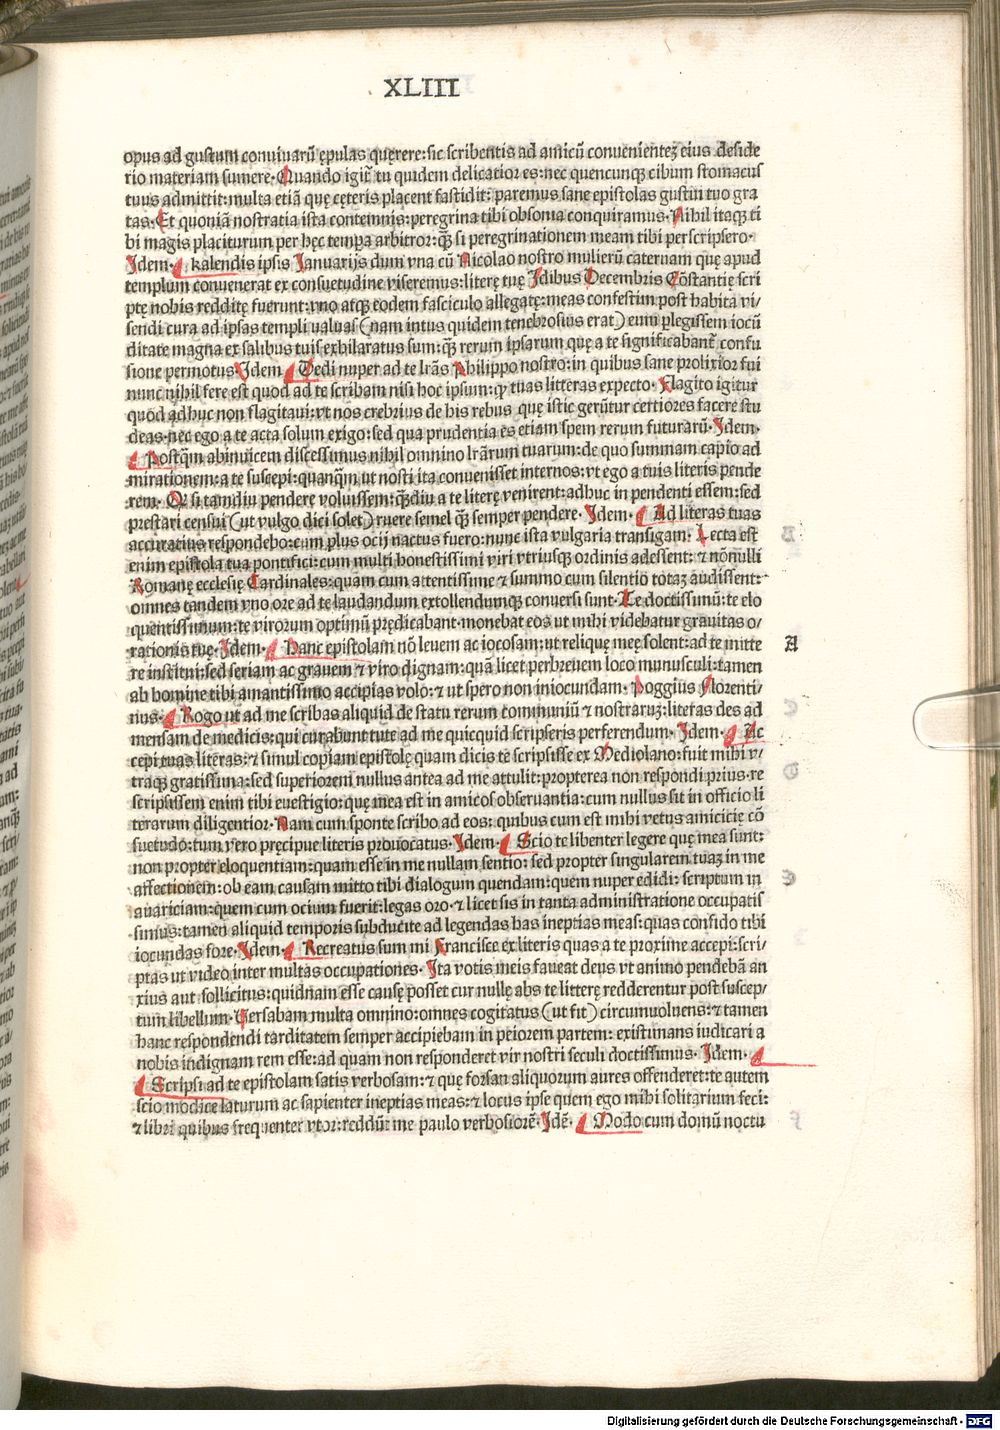 XLIII
opus ad gustum conuiuarū ępulas quęrere: sic scribentis ad amicū conuenienteꝫ eius deside
rio materiam sumere. Quando igit̃ tu quidem delicatior es: nec quencunqꝫ cibum stomacus
tuus admittit: multa etiā quę cęteris placent fastidit: paremus sane epistolas gustui tuo gra
tas. Et quoniā nostratia ista contemnis: peregrina tibi obsonia conquiramus. Nihil itaqꝫ ti
bi magis placiturum per hęc tempa arbitror: qꝫ̃ si peregrinationem meam tibi perscripsero.
Idem. ¶ kalendis ipsis Januarijs dum vna cū Nicolao nostro mulierū cateruam quę apud
templum conuenerat ex consuetudine viseremus: literę tuę Idibus Decembris Cōstantię scri
ptę nobis redditę fuerunt: vno atqꝫ eodem fasciculo allegatę: meas confestim post habita vi/
sendi cura ad ipsas templi valuas (nam intus quidem tenebrosius erat) cum plegissem iocū
ditate magna ex salibus tuis exhilaratus sum: qꝫ̃ rerum ipsarum quę a te significabant̃ confu
sione permotus. Idem ¶ Dedi nuper ad te lr̃as Philippo nostro: in quibus sane prolixior fui
nunc nihil fere est quod ad te scribam nisi hoc ipsum: ꝙ tuas litteras expecto. Flagito igitur
quod adhuc non flagitaui: vt nos crebrius de his rebus quę istic gerūtur certiores facere stu
deas. nec ego a te acta solum exigo: sed qua prudentia es etiam spem rerum futurarū. Idem.
¶ Postq̃m abinuicem discessimus nihil omnino lr̃arum tuarum: de quo summam capio ad
mirationem: a te suscepi: quanq̃m ut nosti ita conuenisset internos: vt ego a tuis literis pende
rem. Qr si tamdiu pendere voluissem: qꝫ̃diu a te literę venirent: adhuc in pendenti essem: sed
prestari censui (ut vulgo dici solet) ruere semel qꝫ̃ semper pendere. Idem. ¶ Ad literas tuas
accuratius respondebo: cum plus ocij nactus fuero: nunc ista vulgaria transigam. Lecta est
enim epistola tua pontifici: cum multi honestissimi viri vtriusqꝫ ordinis adessent: ⁊ nōnulli
Romanę ecclesię Cardinales: quam cum attentissime ⁊ summo cum silentio totaꝫ audissent:
omnes tandem vno ore ad te laudandum extollendumqꝫ conuersi sunt. Te doctissimū: te elo
quentissimum: te virorum optimū prędicabant. monebat eos ut mihi videbatur grauitas o/
rationis tuę. Idem. ¶ Hanc epistolam nō leuem ac iocosam: ut relique meę solent: ad te mitte
A
re institui: sed seriam ac grauem ⁊ viro dignam: quā licet perbreuem loco munusculi: tamen
ab homine tibi amantissimo accipias volo: ⁊ ut spero non iniocundam. Poggius Florenti/
nus. ¶ Rogo ut ad me scribas aliquid de statu rerum communiū ⁊ nostraruꝫ: literas des ad
mensam de medicis: qui curabunt tute ad me quicquid scripseris perferendum. Idem. ¶ Ac
cepi tuas literas: ⁊ simul copiam epistolę quam dicis te scripsisse ex Mediolano: fuit mihi v/
traqꝫ gratissima: sed superiorem nullus antea ad me attulit: propterea non respondi prius. re
scripsissem enim tibi euestigio: quę mea est in amicos obseruantia: cum nullus sit in officio li
terarum diligentior. Nam cum sponte scribo ad eos: quibus cum est mihi vetus amicicię cō
suetudo: tum vero pręcipue literis prouocatus. Idem. ¶ Scio te libenter legere quę mea sunt:
non propter eloquentiam: quam esse in me nullam sentio: sed propter singularem tuaꝫ in me
affectionem: ob eam causam mitto tibi dialogum quendam: quem nuper edidi: scriptum in
auariciam: quem cum ocium fuerit: legas oro. ⁊ licet sis in tanta administratione occupatis
simus: tamen aliquid temporis subducite ad legendas has ineptias meas: quas confido tibi
iocundas fore. Idem. ¶ Recreatus sum mi Francisce ex literis quas a te proxime accepi: scri/
ptas ut video inter multas occupationes. Ita votis meis faueat deus vt animo pendebā an
xius aut sollicitus: quidnam esse causę posset cur nullę abs te litterę redderentur post suscep/
tum libellum. Versabam multa omnino: omnes cogitatus (ut fit) circumuoluens: ⁊ tamen
hanc respondendi tarditatem semper accipiebam in peiorem partem: existimans iudicari a
nobis indignam rem esse: ad quam non responderet vir nostri seculi doctissimus. Idem. ¶
¶ Scripsi ad te epistolam satis verbosam: ⁊ quę forsan aliquorum aures offenderet: te autem
scio modice laturum ac sapienter ineptias meas: ⁊ locus ipse quem ego mihi solitarium feci:
⁊ libri quibus frequenter vtor: reddūt me paulo verbosiorē. Idē. ¶ Modo cum domū noctu
Digitalisierung gefördert durch die Deutsche Forschungsgemeinschaft - DFG